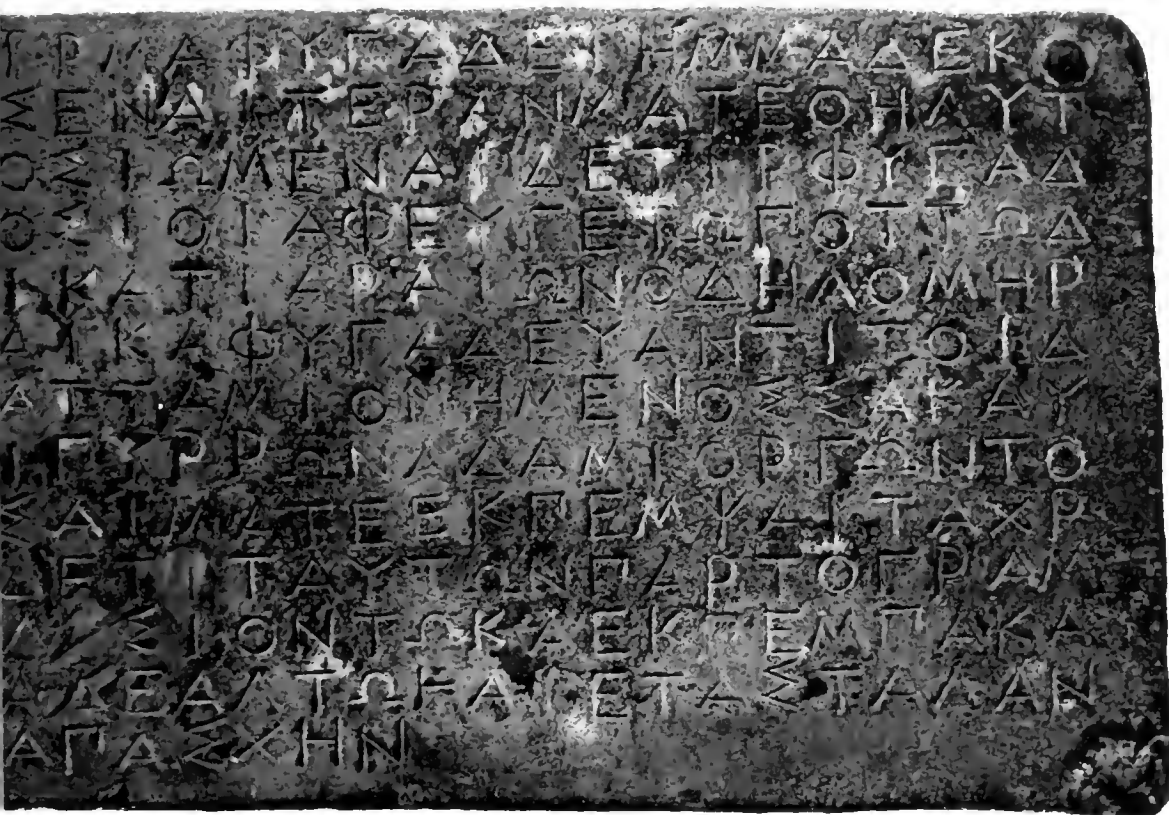 ΙΡΜΑΦΥΓΑΔΕΙΗΜΜΑΔΕΚΟ
ΣΕΝΑΙΤΕΡΑΝΜΑΤΕΘΗΛΥΤ
ΟΣΙΩΜΕΝΑΙΔΕΤΙΡΦΥΓΑΔ
ΟΣΙΟΙΑΦΕΥΓΕΤΩΠΟΤΤΩΔ
ΙΚΑΤΙΑΡΑΙΩΝΟΔΗΛΟΜΗΡ
ΑΙΚΑΦΥΓΑΔΕΥΑΝΤΙΤΟΙΔ
ΑΤΤΑΜΙΟΝΗΜΕΝΟΣΣΑΚΑΥ
ΙΠΥΡΡΩΝΑΔΑΜΙΟΡΓΩΝΤΟ
ΣΑΙΜΑΤΕΕΚΠΕΜΨΑΙΤΑΧΡ
ΔΕΤΙΤΑΥΤΩΝΠΑΡΤΟΓΡΑΜ
ΛΑΣΙΟΝΤΩΚΑΕΚΠΕΜΠΑΚΑ
ΑΔΕΑΛΤΩͰΑΙΕΤΑΣΤΑΛΑΝ
ΑΠΑΣΧΗΝ